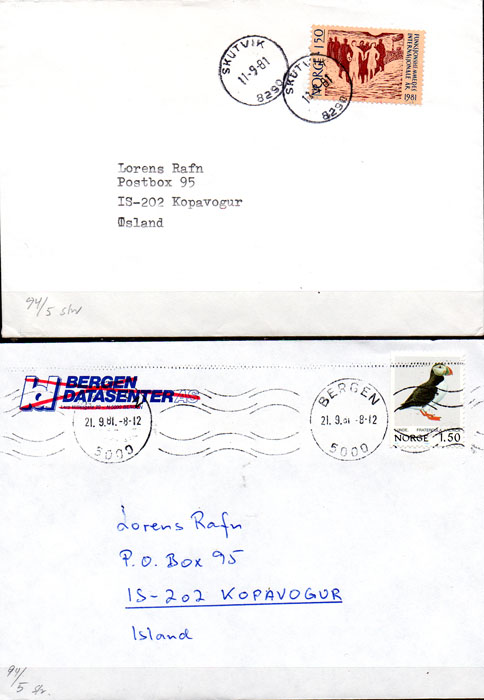 SKUTVIK
11-9-81
8290
SKUTVIK
8290
NORGE 150
FUNKSJONSHEMMEDES
INTERNASJONALE ÅR
1981
Lorens Rafn
Postbox 95
IS-202 Kopavogur
Øsland
94/5
BERGEN
DATASENTER AS
21.9.81.-8-12
5000
BERGEN
21.9.81-8-12
5000
NORGE 1.50
Lorens Rafn
P.O. Box 95
IS-202 KOPAVOGUR
Island
94/
5